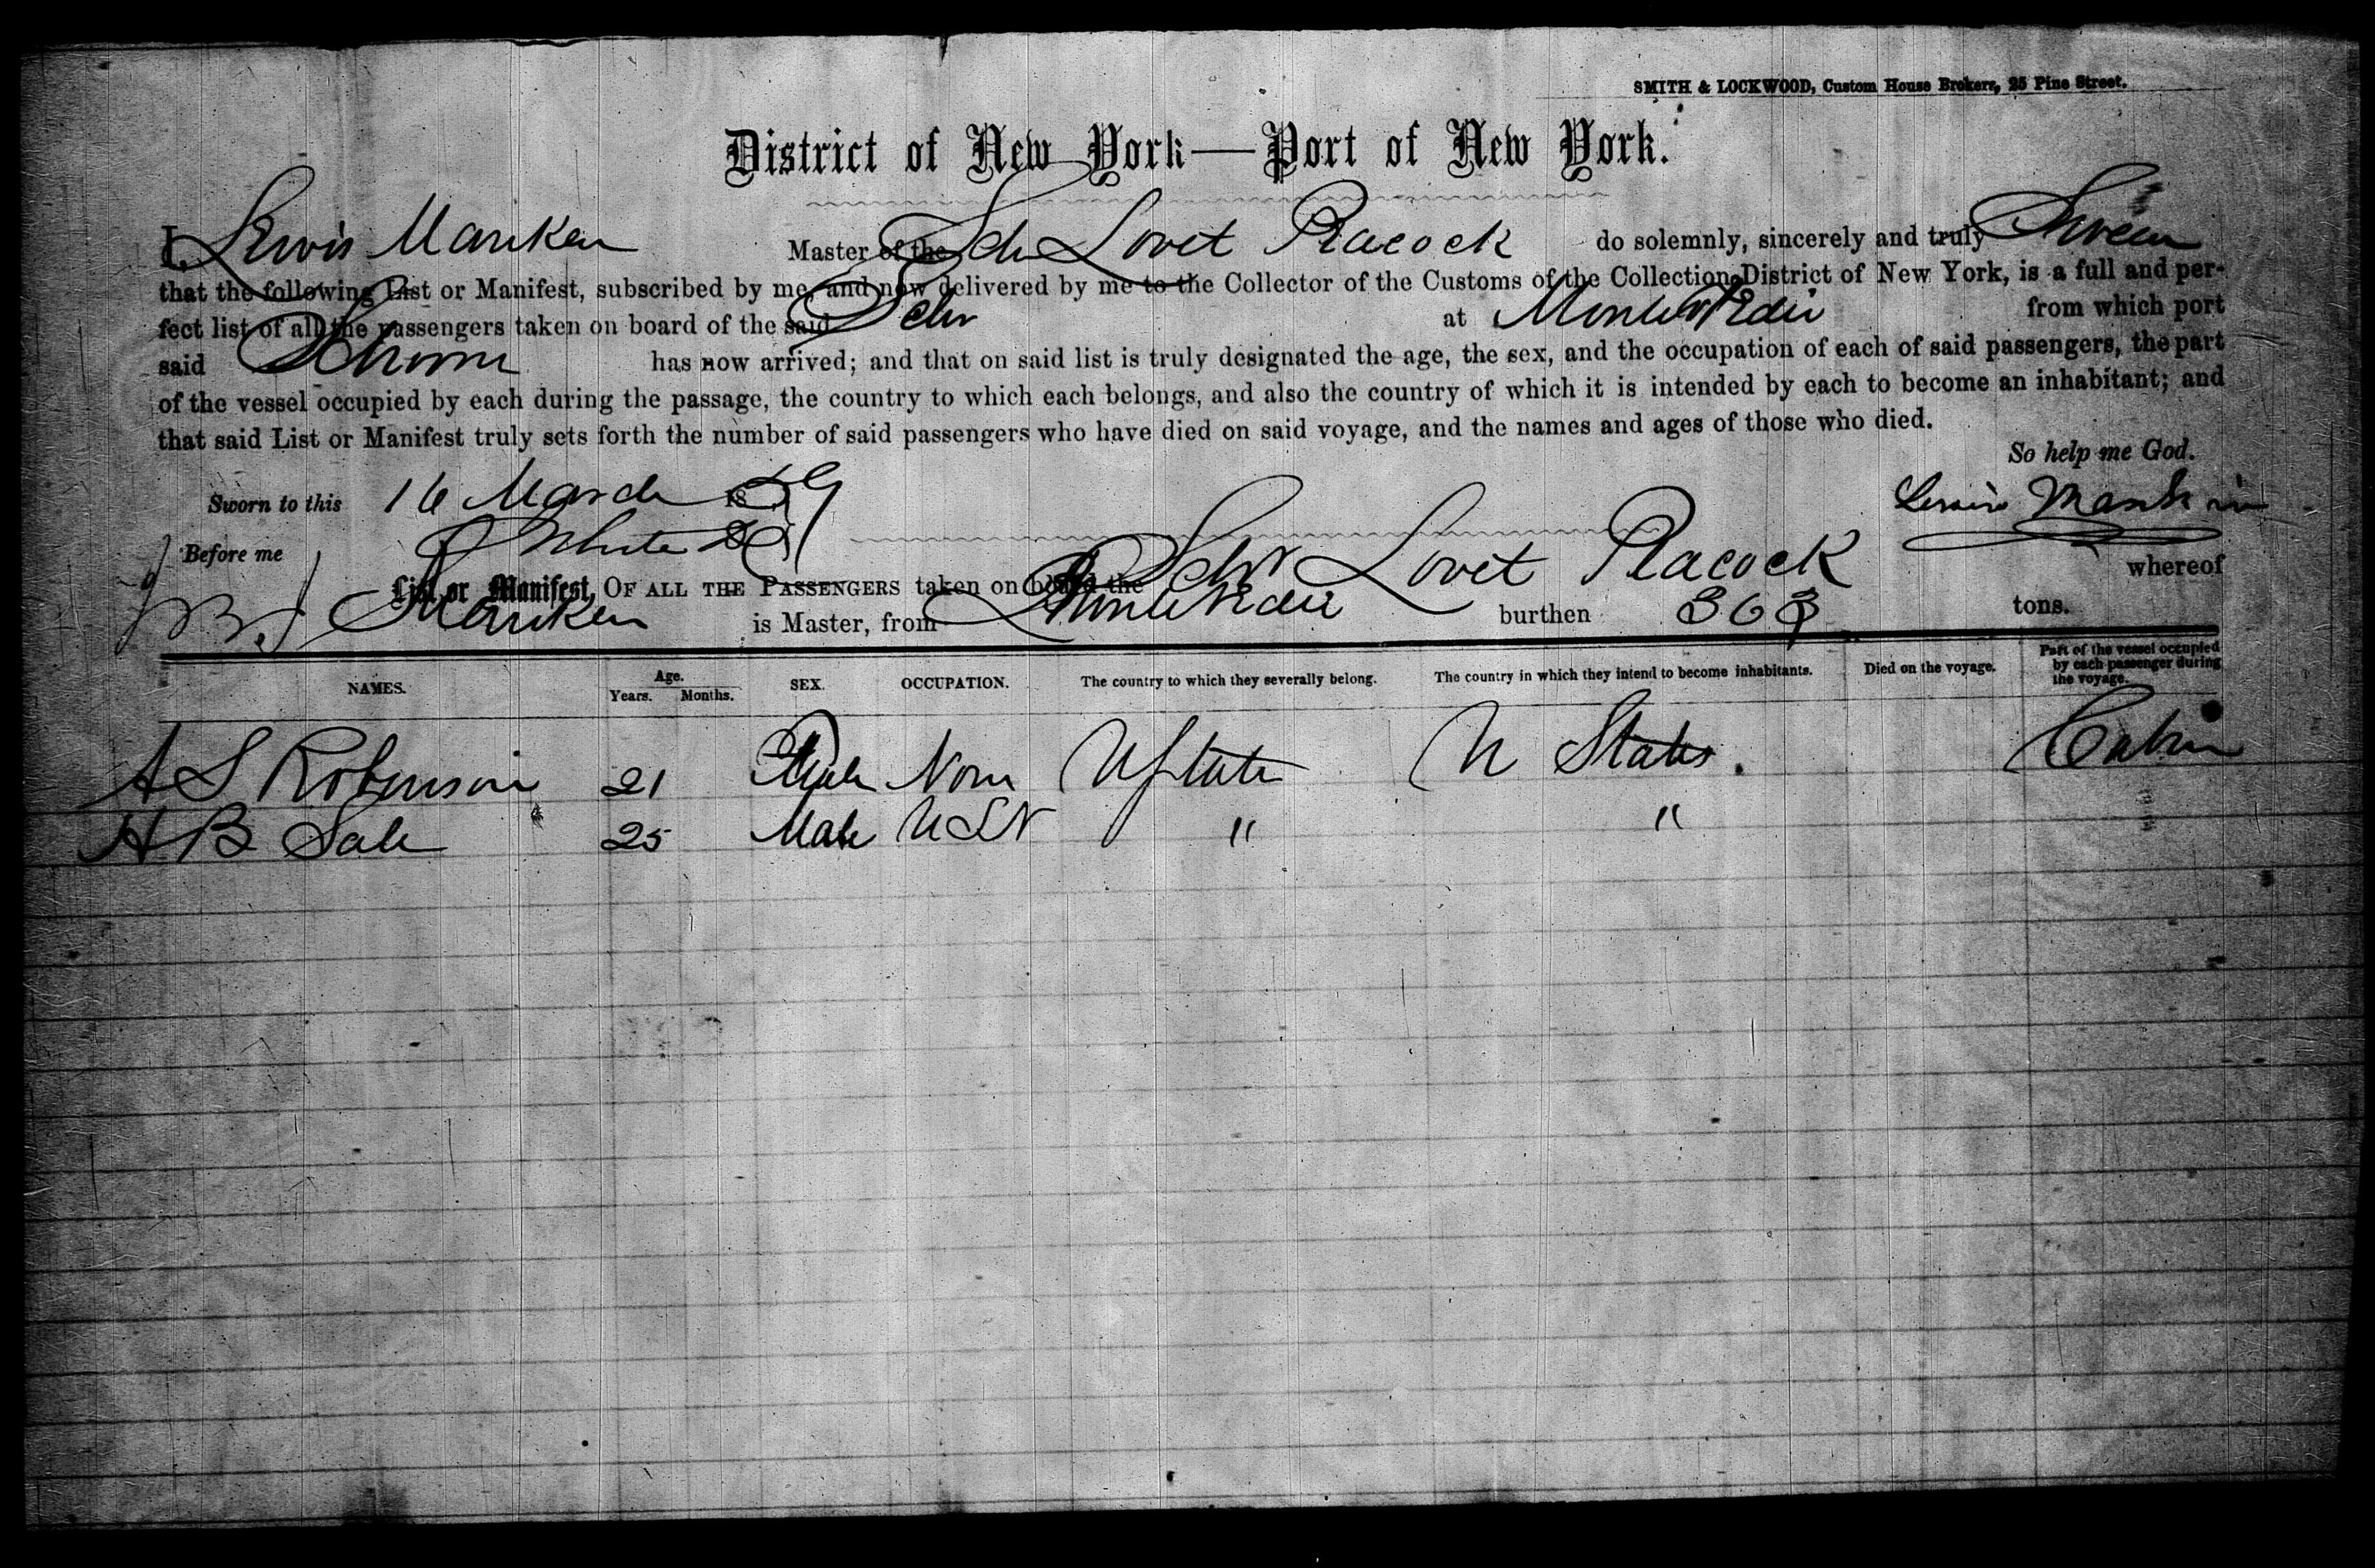 SMITH & LOCKWOOD, Custom House Brokers, 25 Pine Street.
District of New York—Port of New York.
I, Lewis Manken Master of the Schr Lovet Peacock do solemnly, sincerely and truly Swear
that the following List or Manifest, subscribed by me, and now delivered by me to the Collector of the Customs of the Collection District of New York, is a full and per-
fect list of all the passengers taken on board of the said Schr at Montevedeo from which port
said Schooner has now arrived; and that on said list is truly designated the age, the sex, and the occupation of each of said passengers, the part
of the vessel occupied by each during the passage, the country to which each belongs, and also the country of which it is intended by each to become an inhabitant; and
that said List or Manifest truly sets forth the number of said passengers who have died on said voyage, and the names and ages of those who died.
So help me God.
Sworn to this 16 March 1859 Lewis Mankin
Before me White
List or Manifest, OF ALL THE PASSENGERS taken on board the Schr Lovet Peacock whereof
Manken is Master, from Montevedeo burthen 363 tons.
NAMES. Age. Years. Months. SEX. OCCUPATION. The country to which they severally belong. The country in which they intend to become inhabitants. Died on the voyage. Part of the vessel occupied by each passenger during the voyage.
A S Robinson 21 Male None U State U States. Cabin
H B Sale 25 Male USN " "